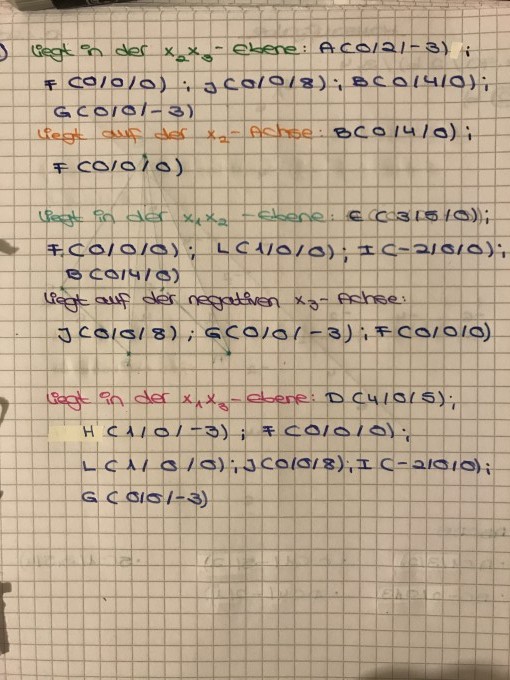 liegt in der x₂x₃-Ebene: A(0/2/-3);
F(0/0/0); J(0/0/8); B(0/4/0);
G(0/0/-3)
liegt auf der x₂-Achse: B(0/4/0);
F(0/0/0)
liegt in der x₁x₂-Ebene: E(3/5/0);
F(0/0/0); L(1/0/0); I(-2/0/0);
B(0/4/0)
liegt auf der negativen x₃-Achse:
J(0/0/8); G(0/0/-3); F(0/0/0)
liegt in der x₁x₃-Ebene: D(4/0/5);
H(1/0/-3); F(0/0/0);
L(1/0/0); J(0/0/8); I(-2/0/0);
G(0/0/-3)